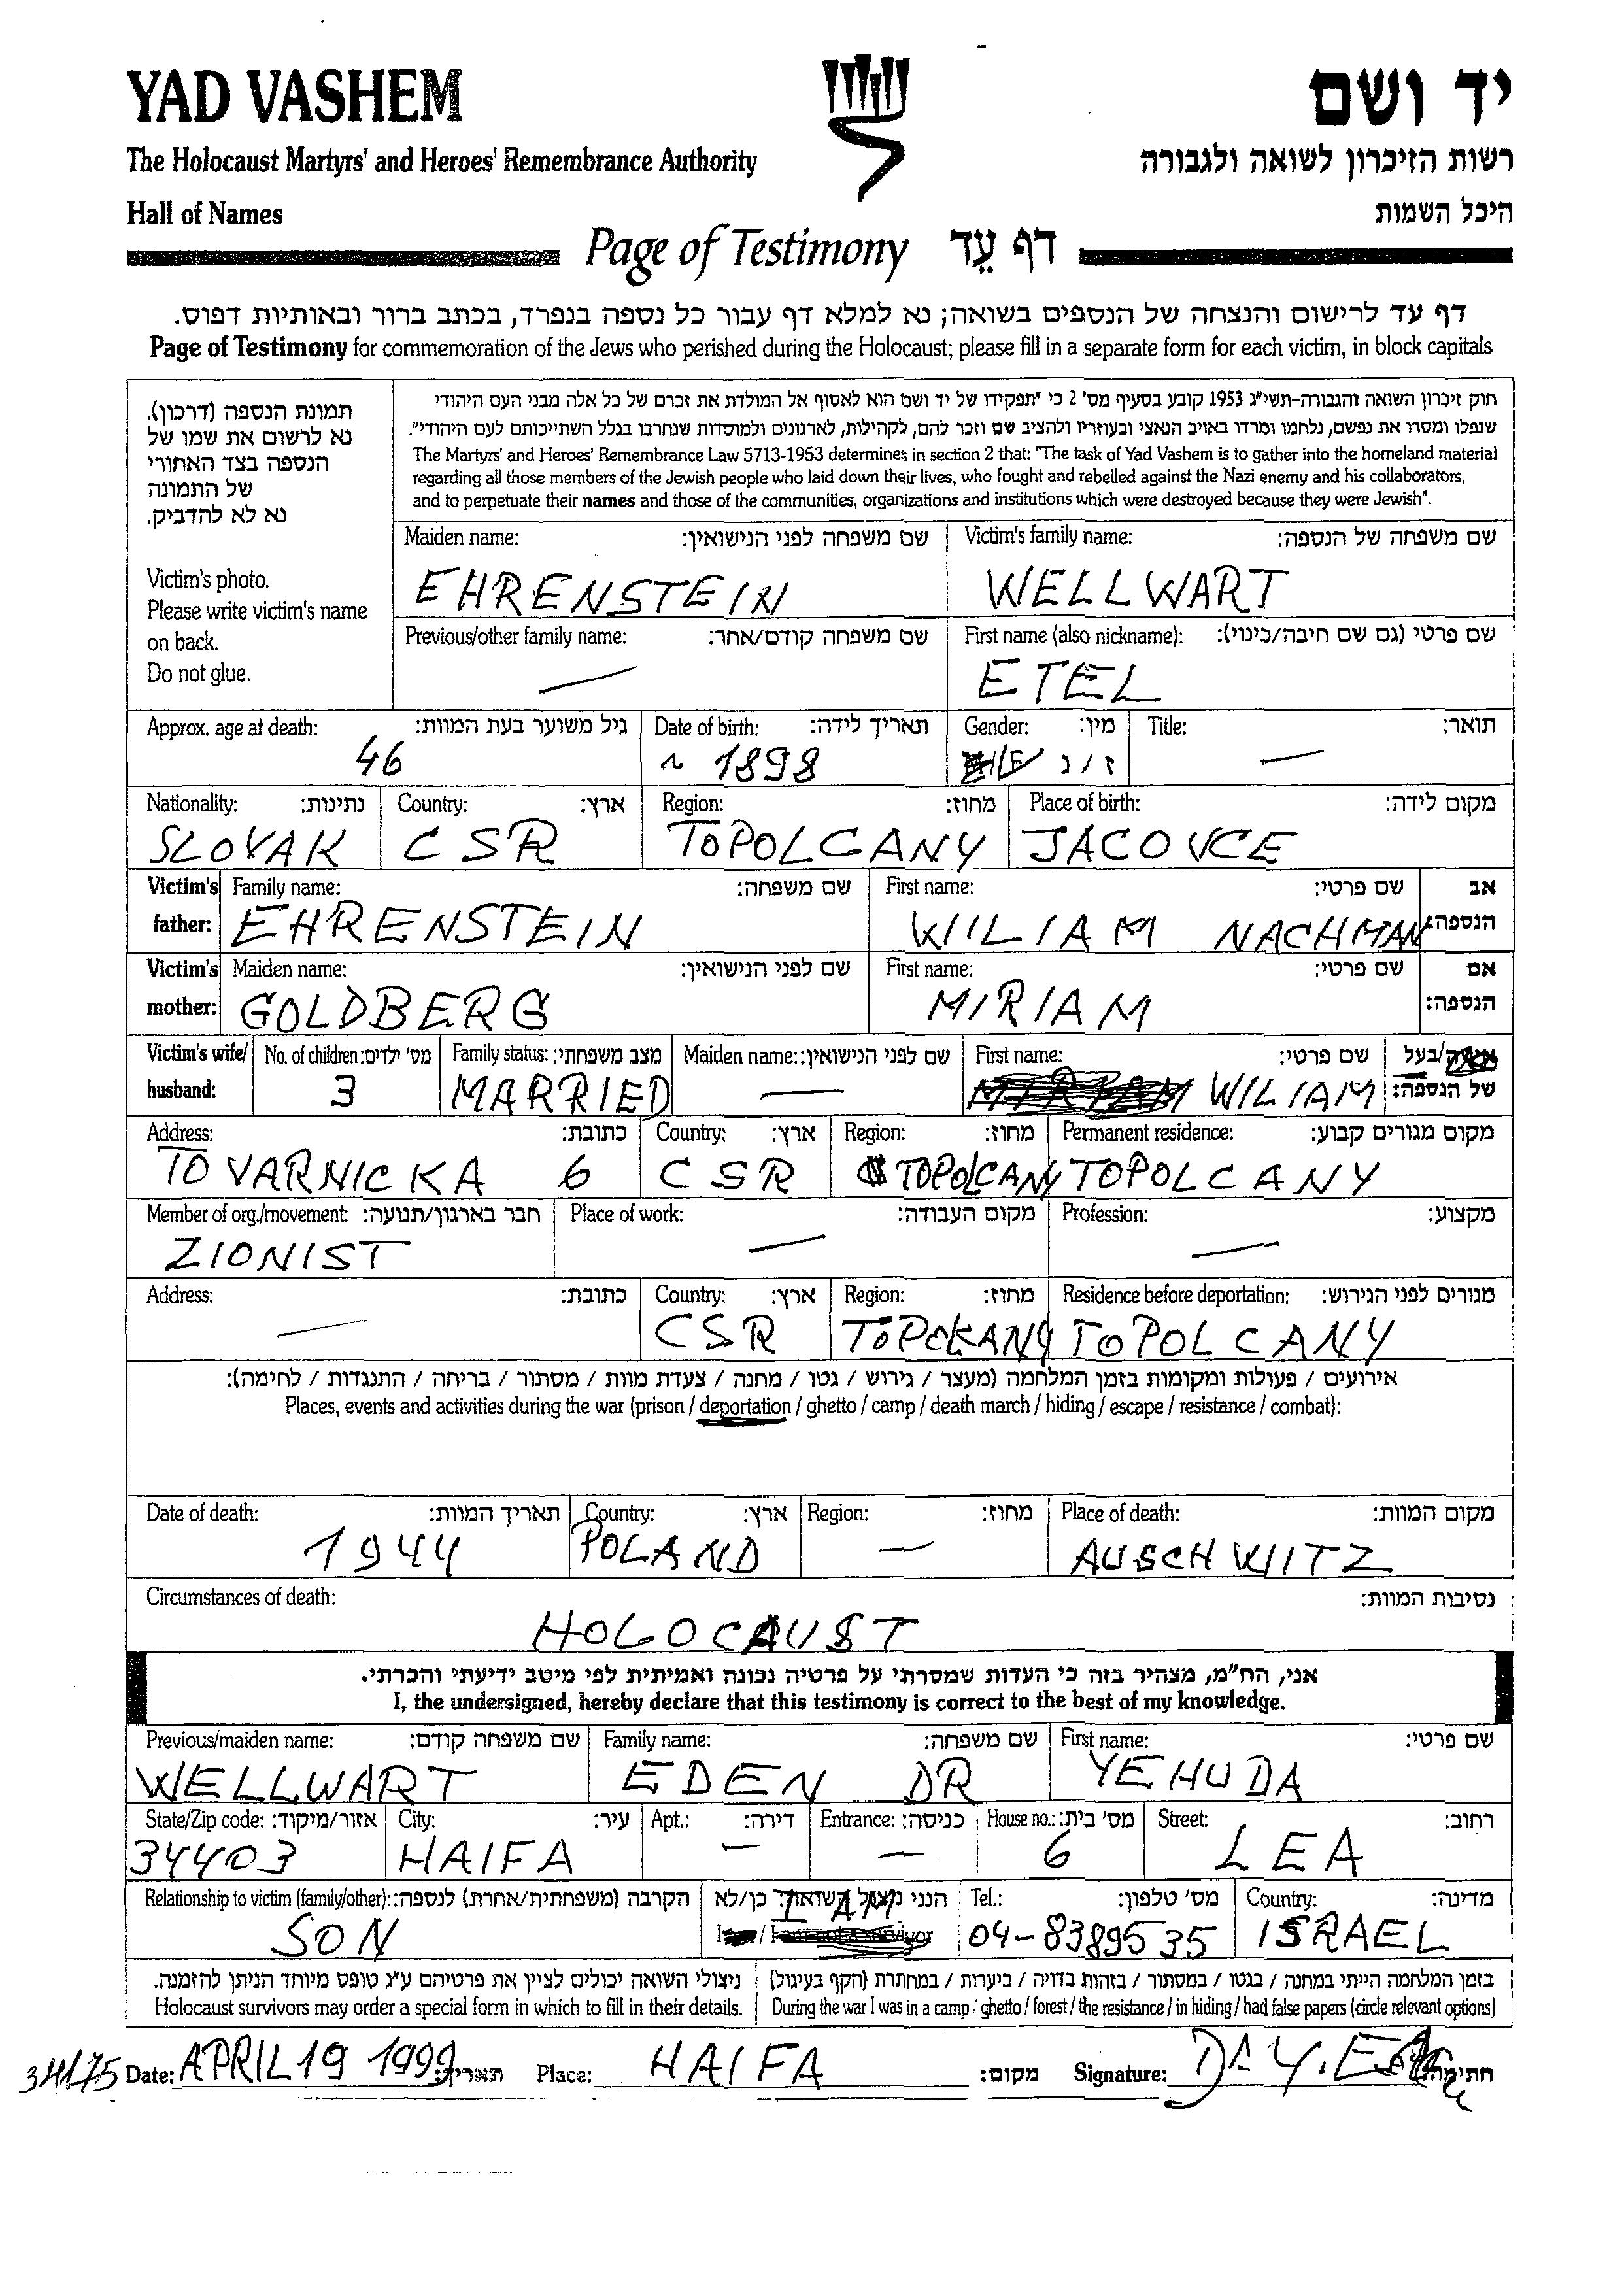 YAD VASHEM
יד ושם
The Holocaust Martyrs' and Heroes' Remembrance Authority
רשות הזיכרון לשואה ולגבורה
Hall of Names
היכל השמות
Page of Testimony דף עֵד
דף עד לרישום והנצחה של הנספים בשואה; נא למלא דף עבור כל נספה בנפרד, בכתב ברור ובאותיות דפוס.
Page of Testimony for commemoration of the Jews who perished during the Holocaust; please fill in a separate form for each victim, in block capitals
תמונת הנספה (דרכון).
נא לרשום את שמו של
הנספה בצד האחורי
של התמונה
נא לא להדביק.
Victim's photo.
Please write victim's name
on back.
Do not glue.
חוק זיכרון השואה והגבורה-תשי"ג 1953 קובע בסעיף מס' 2 כי "תפקידו של יד ושם הוא לאסוף אל המולדת את זכרם של כל אלה מבני העם היהודי
שנפלו ומסרו את נפשם, נלחמו ומרדו באויב הנאצי ובעוזריו ולהציב שם וזכר להם, לקהילות, לארגונים ולמוסדות שנחרבו בגלל השתייכותם לעם היהודי".
The Martyrs' and Heroes' Remembrance Law 5713-1953 determines in section 2 that: "The task of Yad Vashem is to gather into the homeland material
regarding all those members of the Jewish people who laid down their lives, who fought and rebelled against the Nazi enemy and his collaborators,
and to perpetuate their names and those of the communities, organizations and institutions which were destroyed because they were Jewish".
Maiden name: שם משפחה לפני הנישואין: Victim's family name: שם משפחה של הנספה:
EHRENSTEIN WELLWART
Previous/other family name: שם משפחה קודם/אחר: First name (also nickname): שם פרטי (גם שם חיבה/כינוי):
— ETEL
Approx. age at death: גיל משוער בעת המוות: Date of birth: תאריך לידה: Gender: מין: Title: תואר:
46 ~ 1898 /F ז / נ —
Nationality: נתינות: Country: ארץ: Region: מחוז: Place of birth: מקום לידה:
SLOVAK CSR TOPOLCANY JACOVCE
Victim's father: Family name: שם משפחה: First name: שם פרטי: אב הנספה:
EHRENSTEIN WILIAM NACHMAN
Victim's mother: Maiden name: שם לפני הנישואין: First name: שם פרטי: אם הנספה:
GOLDBERG MIRIAM
Victim's wife/ husband: No. of children: מס' ילדים: Family status: מצב משפחתי: Maiden name: שם לפני הנישואין: First name: שם פרטי: /בעל של הנספה:
3 MARRIED — WILIAM
Address: כתובת: Country: ארץ: Region: מחוז: Permanent residence: מקום מגורים קבוע:
TOVARNICKA 6 CSR TOPOLCANY TOPOLCANY
Member of org./movement: חבר בארגון/תנועה: Place of work: מקום העבודה: Profession: מקצוע:
ZIONIST — —
Address: כתובת: Country: ארץ: Region: מחוז: Residence before deportation: מגורים לפני הגירוש:
— CSR TOPOLCANY TOPOLCANY
אירועים / פעולות ומקומות בזמן המלחמה (מעצר / גירוש / גטו / מחנה / צעדת מוות / מסתור / בריחה / התנגדות / לחימה):
Places, events and activities during the war (prison / deportation / ghetto / camp / death march / hiding / escape / resistance / combat):
Date of death: תאריך המוות: Country: ארץ: Region: מחוז: Place of death: מקום המוות:
1944 POLAND — AUSCHWITZ
Circumstances of death: נסיבות המוות:
HOLOCAUST
אני, הח"מ, מצהיר בזה כי העדות שמסרתי על פרטיה נכונה ואמיתית לפי מיטב ידיעתי והכרתי.
I, the undersigned, hereby declare that this testimony is correct to the best of my knowledge.
Previous/maiden name: שם משפחה קודם: Family name: שם משפחה: First name: שם פרטי:
WELLWART EDEN DR YEHUDA
State/Zip code: אזור/מיקוד: City: עיר: Apt.: דירה: Entrance: כניסה: House no.: מס' בית: Street: רחוב:
34403 HAIFA — — 6 LEA
Relationship to victim (family/other): הקרבה (משפחתית/אחרת) לנספה: הנני ניצול השואה: כן/לא Tel.: מס' טלפון: Country: מדינה:
SON I AM 04-8389535 ISRAEL
ניצולי השואה יכולים לציין את פרטיהם ע"ג טופס מיוחד הניתן להזמנה. בזמן המלחמה הייתי במחנה / בגטו / במסתור / בזהות בדויה / ביערות / במחתרת (הקף בעיגול)
Holocaust survivors may order a special form in which to fill in their details. During the war I was in a camp / ghetto / forest / the resistance / in hiding / had false papers (circle relevant options)
341/75 Date: APRIL 19 1999 תאריך: Place: HAIFA מקום: Signature: חתימה: